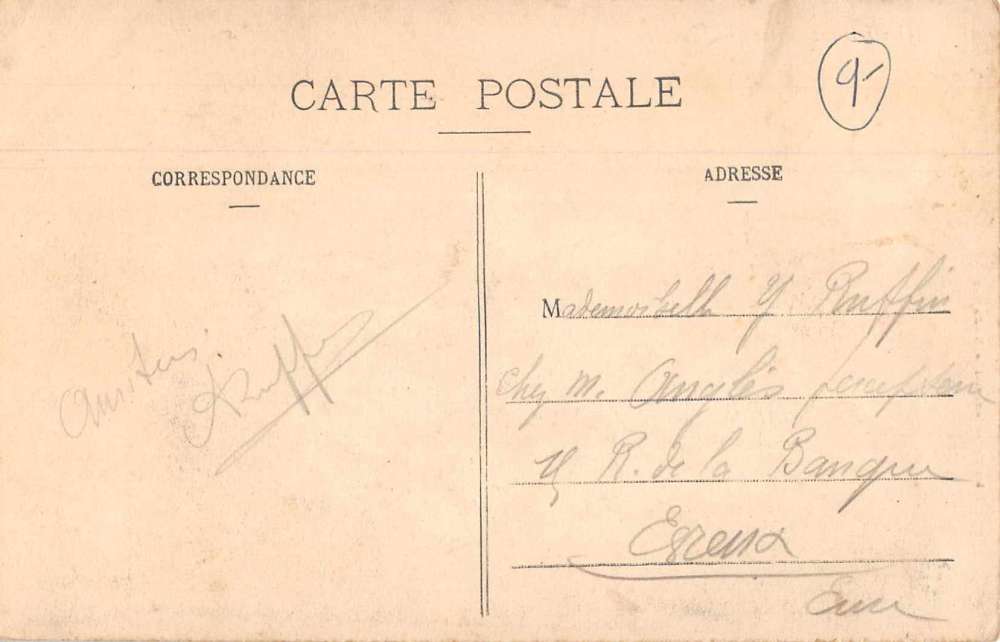 CARTE POSTALE
9-
CORRESPONDANCE
Amitiés
Ruffin
ADRESSE
Mademoiselle Y. Ruffin
chez M. Anglès percepteur
R. de la Banque
Evreux
Eure